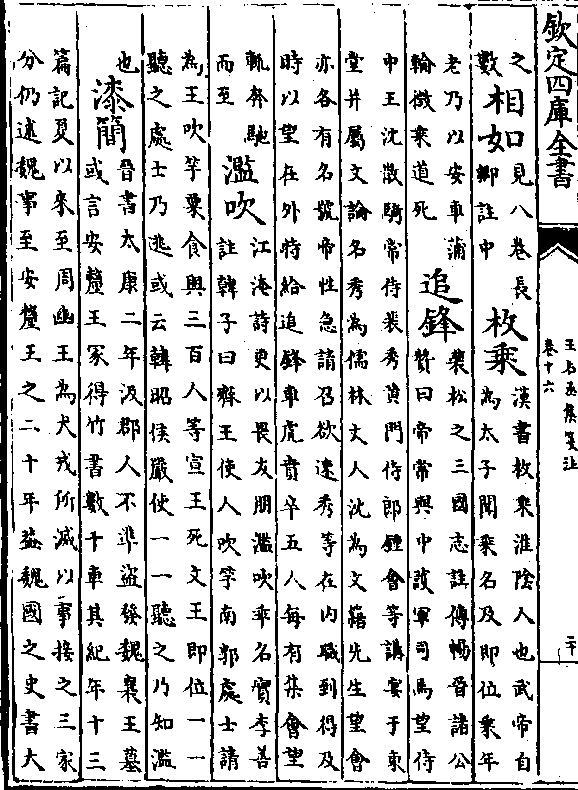 欽定四庫全書
王右丞集箋註
卷十六
二十
之
數
相如
見八巻長
卿註中
枚乘
漢書枚乘淮陰人也武帝自
為太子聞乘名及即位乘年
老乃以安車蒲
輪徵乘道死
追鋒
裴松之三國志註傅暢晉諸公
贊曰帝常與中護軍司馬望侍
中王沈散騎常侍裴秀黄門侍郎鍾會等講宴于東
堂并屬文論名秀為儒林丈人沈為文籍先生望會
亦各有名號帝性急請召欲速秀等在内職到得及
時以望在外特給追鋒車虎賁卒五人每有集會望
輒奔馳
而至
濫吹
江淹詩更以畏友朋濫吹乖名實李善
註韓子曰齊王使人吹竽南郭處士請
為王吹竽粟食與三百人等宣王死文王即位一一
聽之處士乃逃或云韓昭侯嚴使一一聽之乃知濫
也
漆簡
晉書太康二年汲郡人不準盜發魏襄王墓
或言安釐王冢得竹書數十車其紀年十三
篇記夏以來至周幽王為犬戎所滅以事接之三家
分仍述魏事至安釐王之二十年葢魏國之史書大